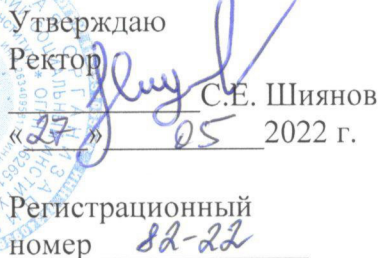 Утверждаю
Ректор
С.Е. Шиянов
«27» 05 2022 г.
Регистрационный
номер 82-22